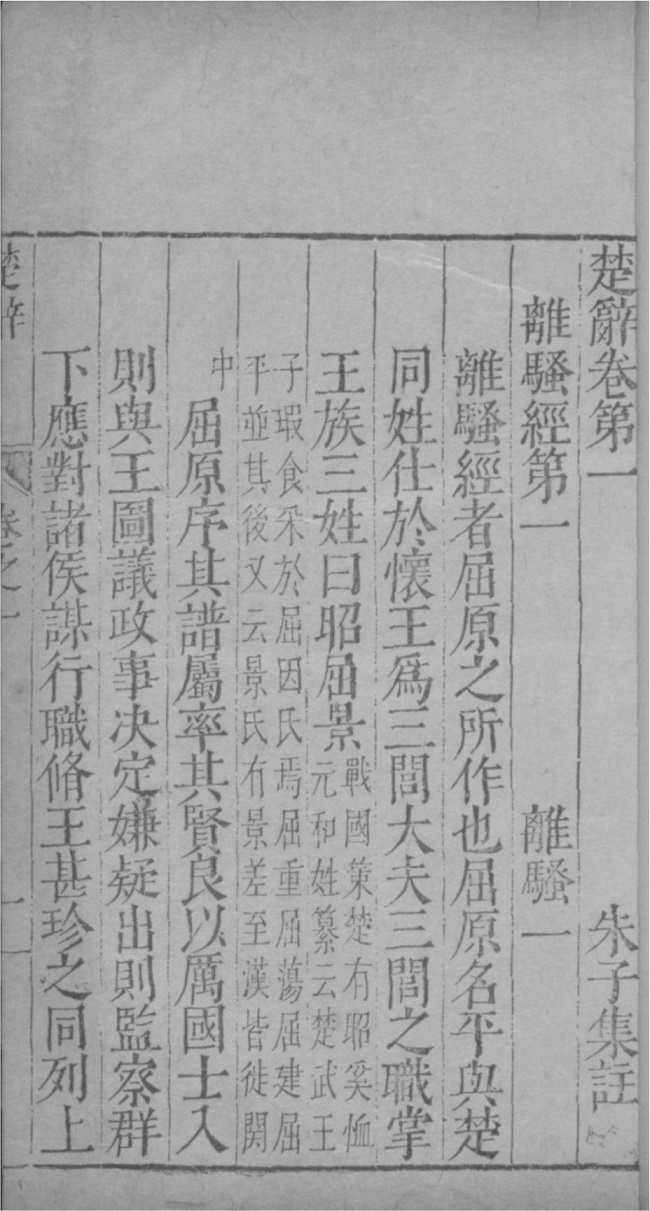 楚辭卷第一
朱子集註
離騷經第一
離騷一
離騷經者屈原之所作也屈原名平與楚
同姓仕於懷王爲三閭大夫三閭之職掌
王族三姓曰昭屈景
戰國策楚有昭奚恤
元和姓纂云楚武王
子瑕食采於屈因氏焉屈重屈蕩屈建屈
平並其後又云景氏有景差至漢皆徙関
中
屈原序其譜屬率其賢良以厲國士入
則與王圖議政事决定嫌疑出則監察群
下應對諸侯謀行職脩王甚珍之同列上
楚辭
卷之一
一